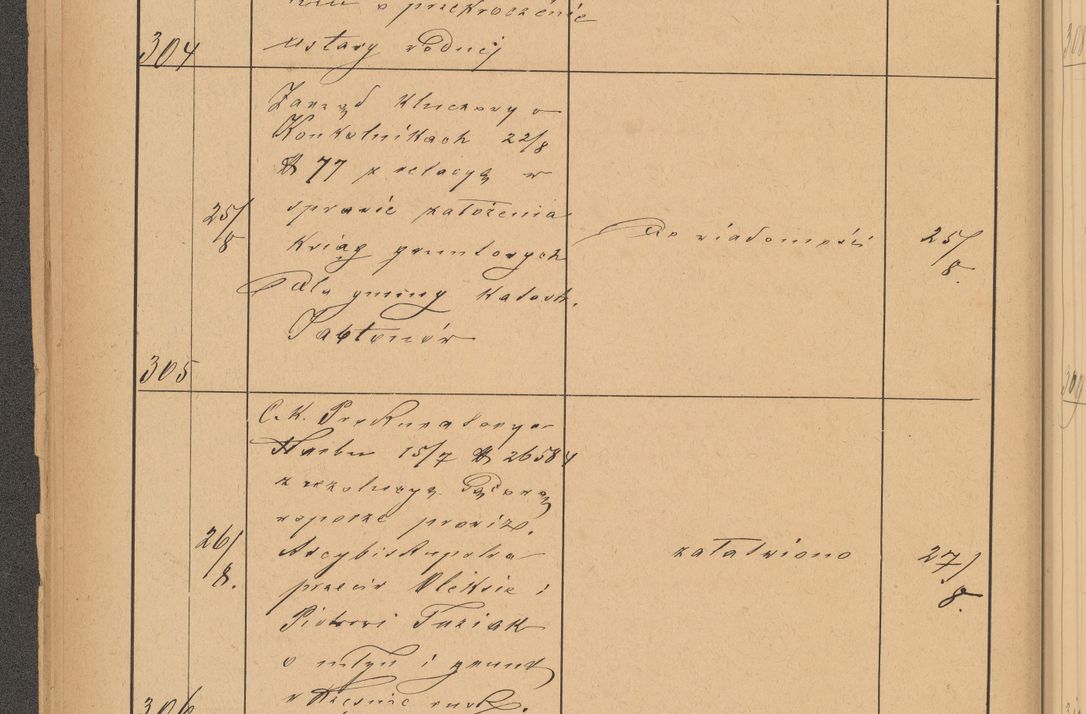 o przekroczenie
304 ustawy wodnej
Zarząd kluczowy w
Konkolnikach 22/8
N 77 z relacyą w
25/8 sprawie założenia
ksiąg gruntowych do wiadomości 25/8.
dla gminy katast.
Jabłonów
305
C. k. Prokuratorya
Skarbu 15/7 N 26584
z rezolucyą Sądową
w sporze prowiz.
26/8. Arcybiskupstwa załatwiono 27/8.
przeciw Oleksie i
Piotrowi Faziak
o młyn i grunt
w
306